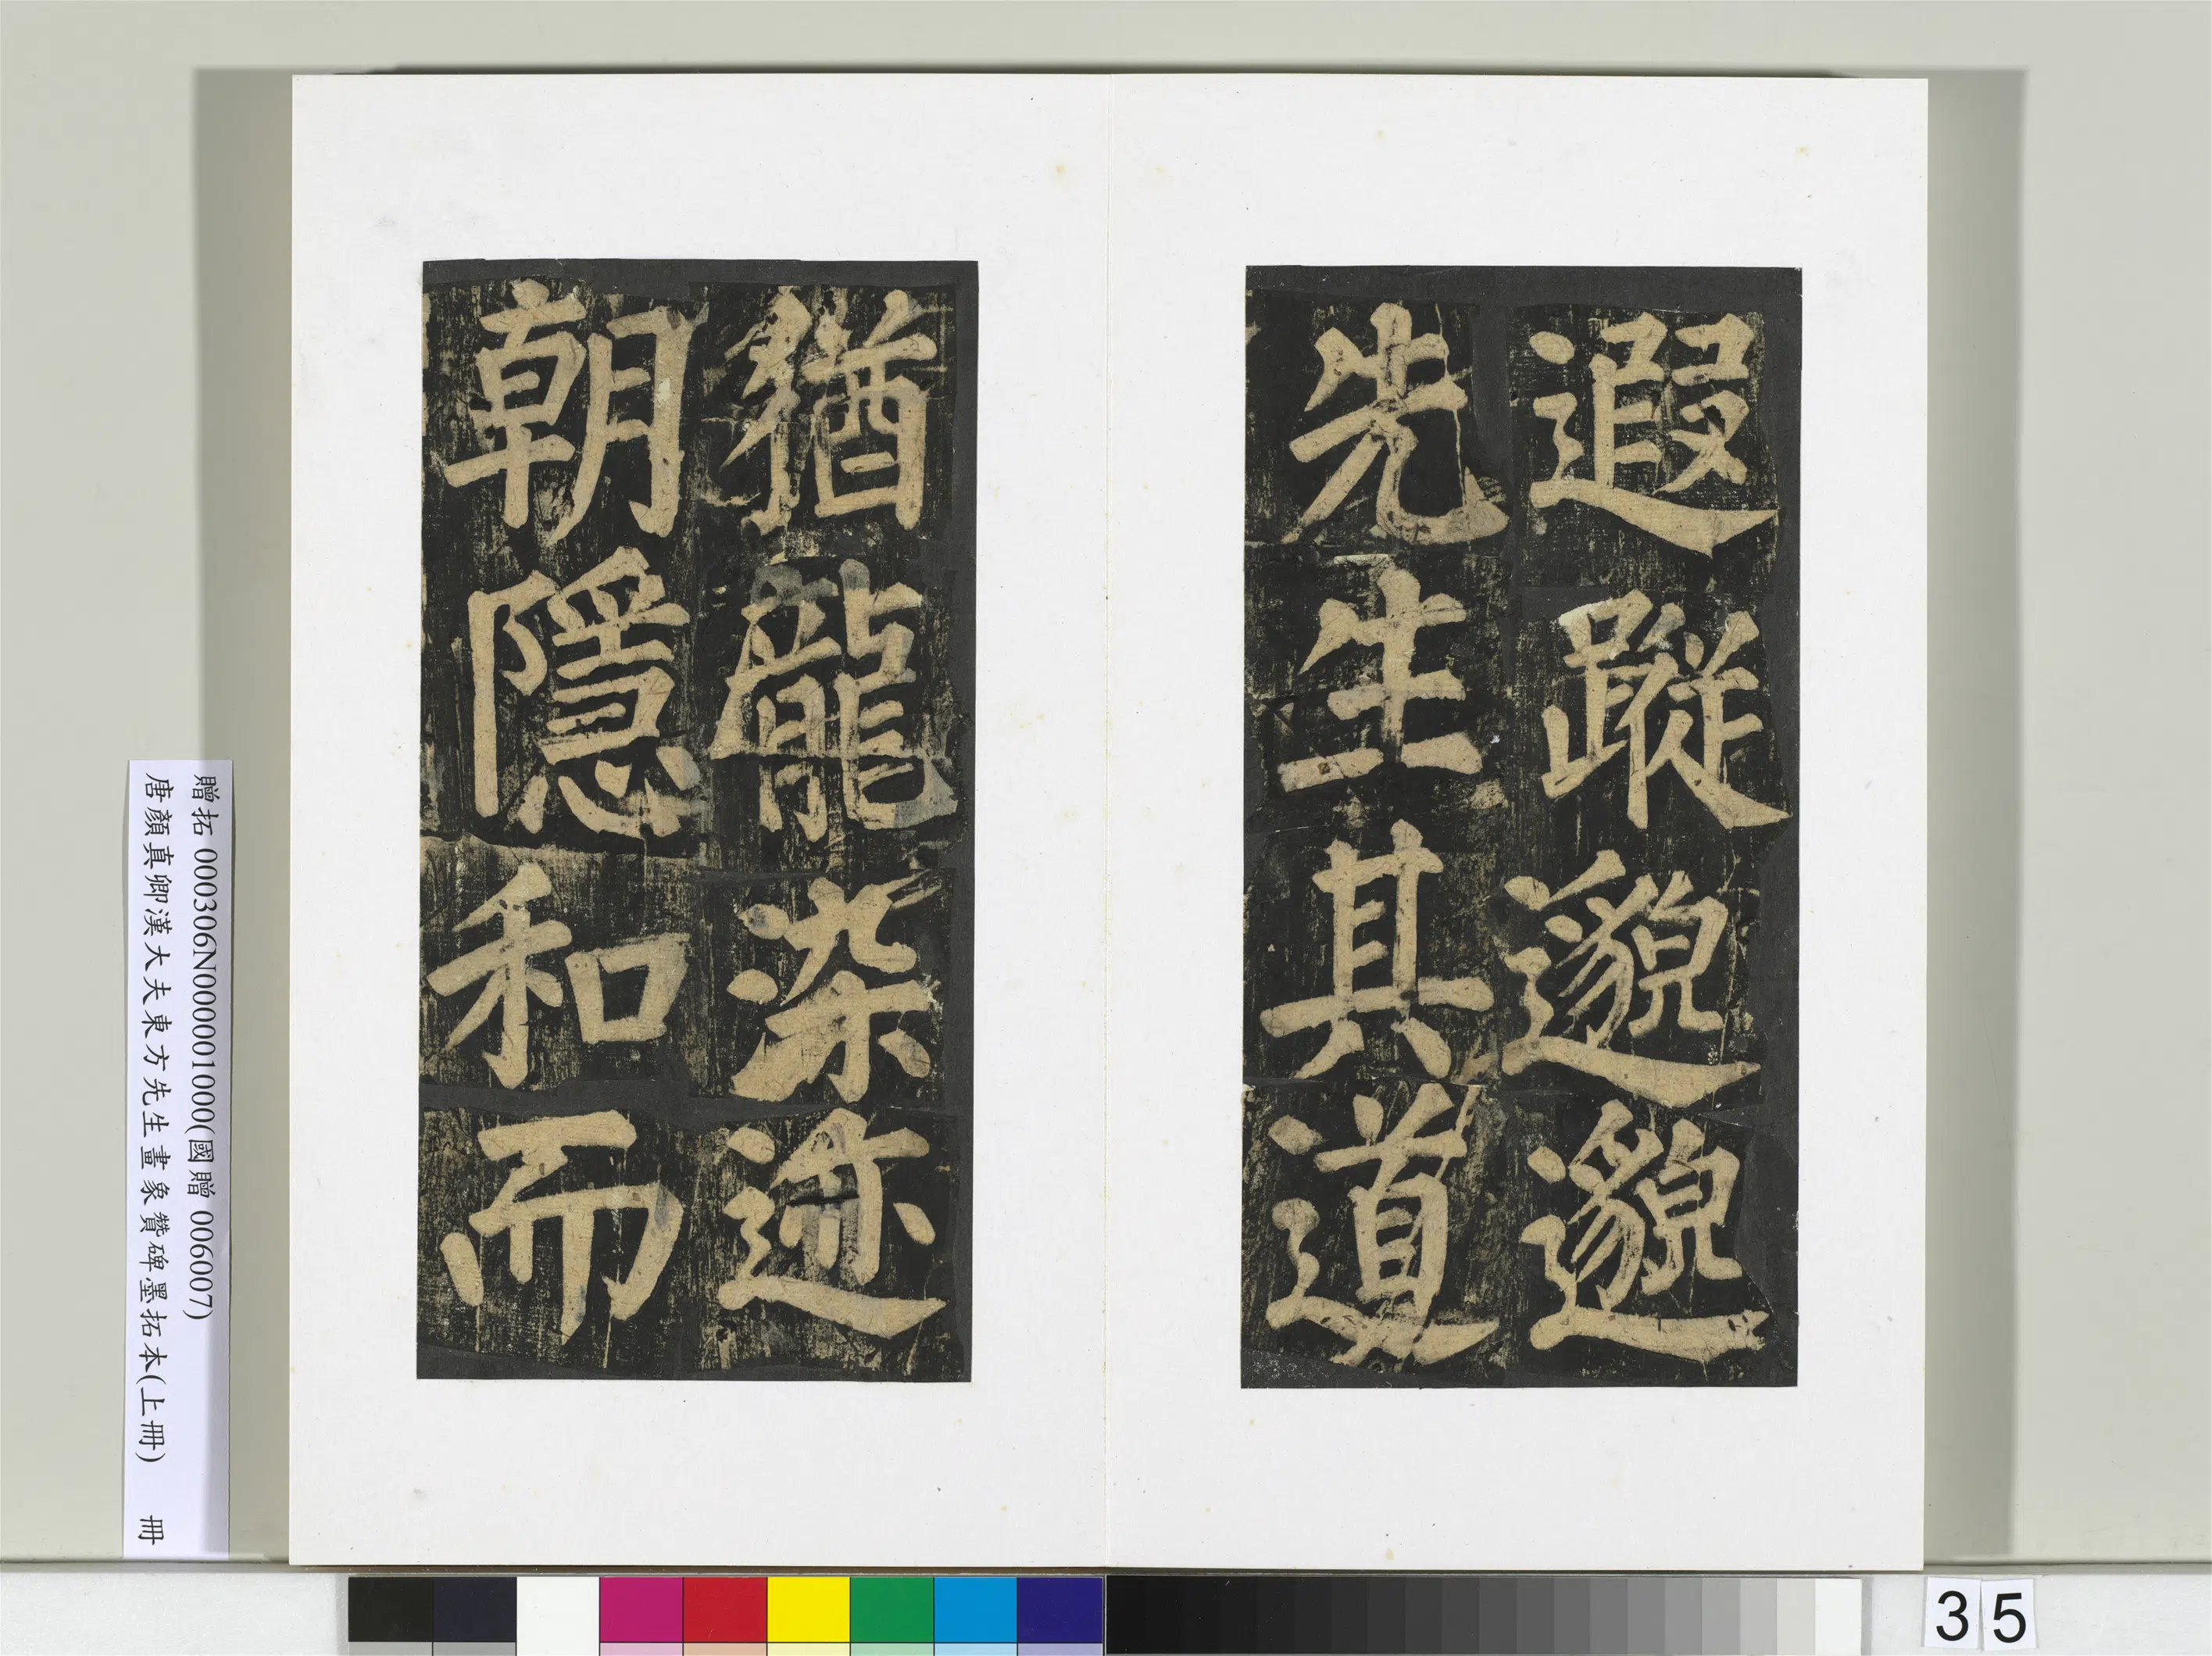 遐蹤邈邈
先生其道
猶龍染迹
朝隱和而
贈拓 000306N000001000(國贈 006007)
唐顏真卿漢大夫東方先生畫象贊碑墨拓本(上冊) 冊
35